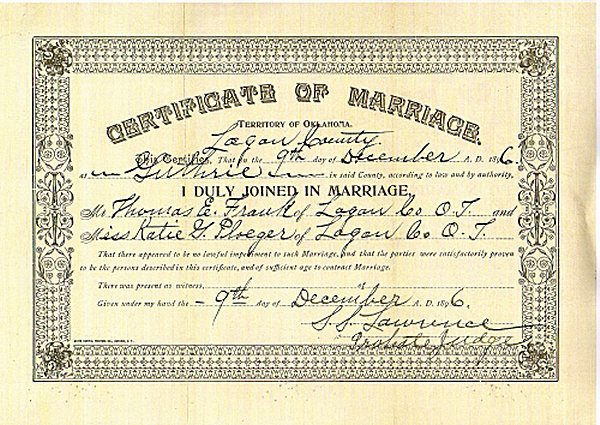 CERTIFICATE OF MARRIAGE.
TERRITORY OF OKLAHOMA.
Logan County
This Certifies, That on the 9th day of December A. D. 1896.
at Guthrie in said County, according to law and by authority,
I DULY JOINED IN MARRIAGE,
Mr Thomas E. Frank of Logan Co O. T. and
Miss Katie G. Ploeger of Logan Co O. T.
That there appeared to be no lawful impediment to such Marriage, and that the parties were satisfactorily proven
to be the persons described in this certificate, and of sufficient age to contract Marriage.
There was present as witness, of
Given under my hand the 9th day of December A. D. 1896.
S. S. Lawrence
Probate Judge